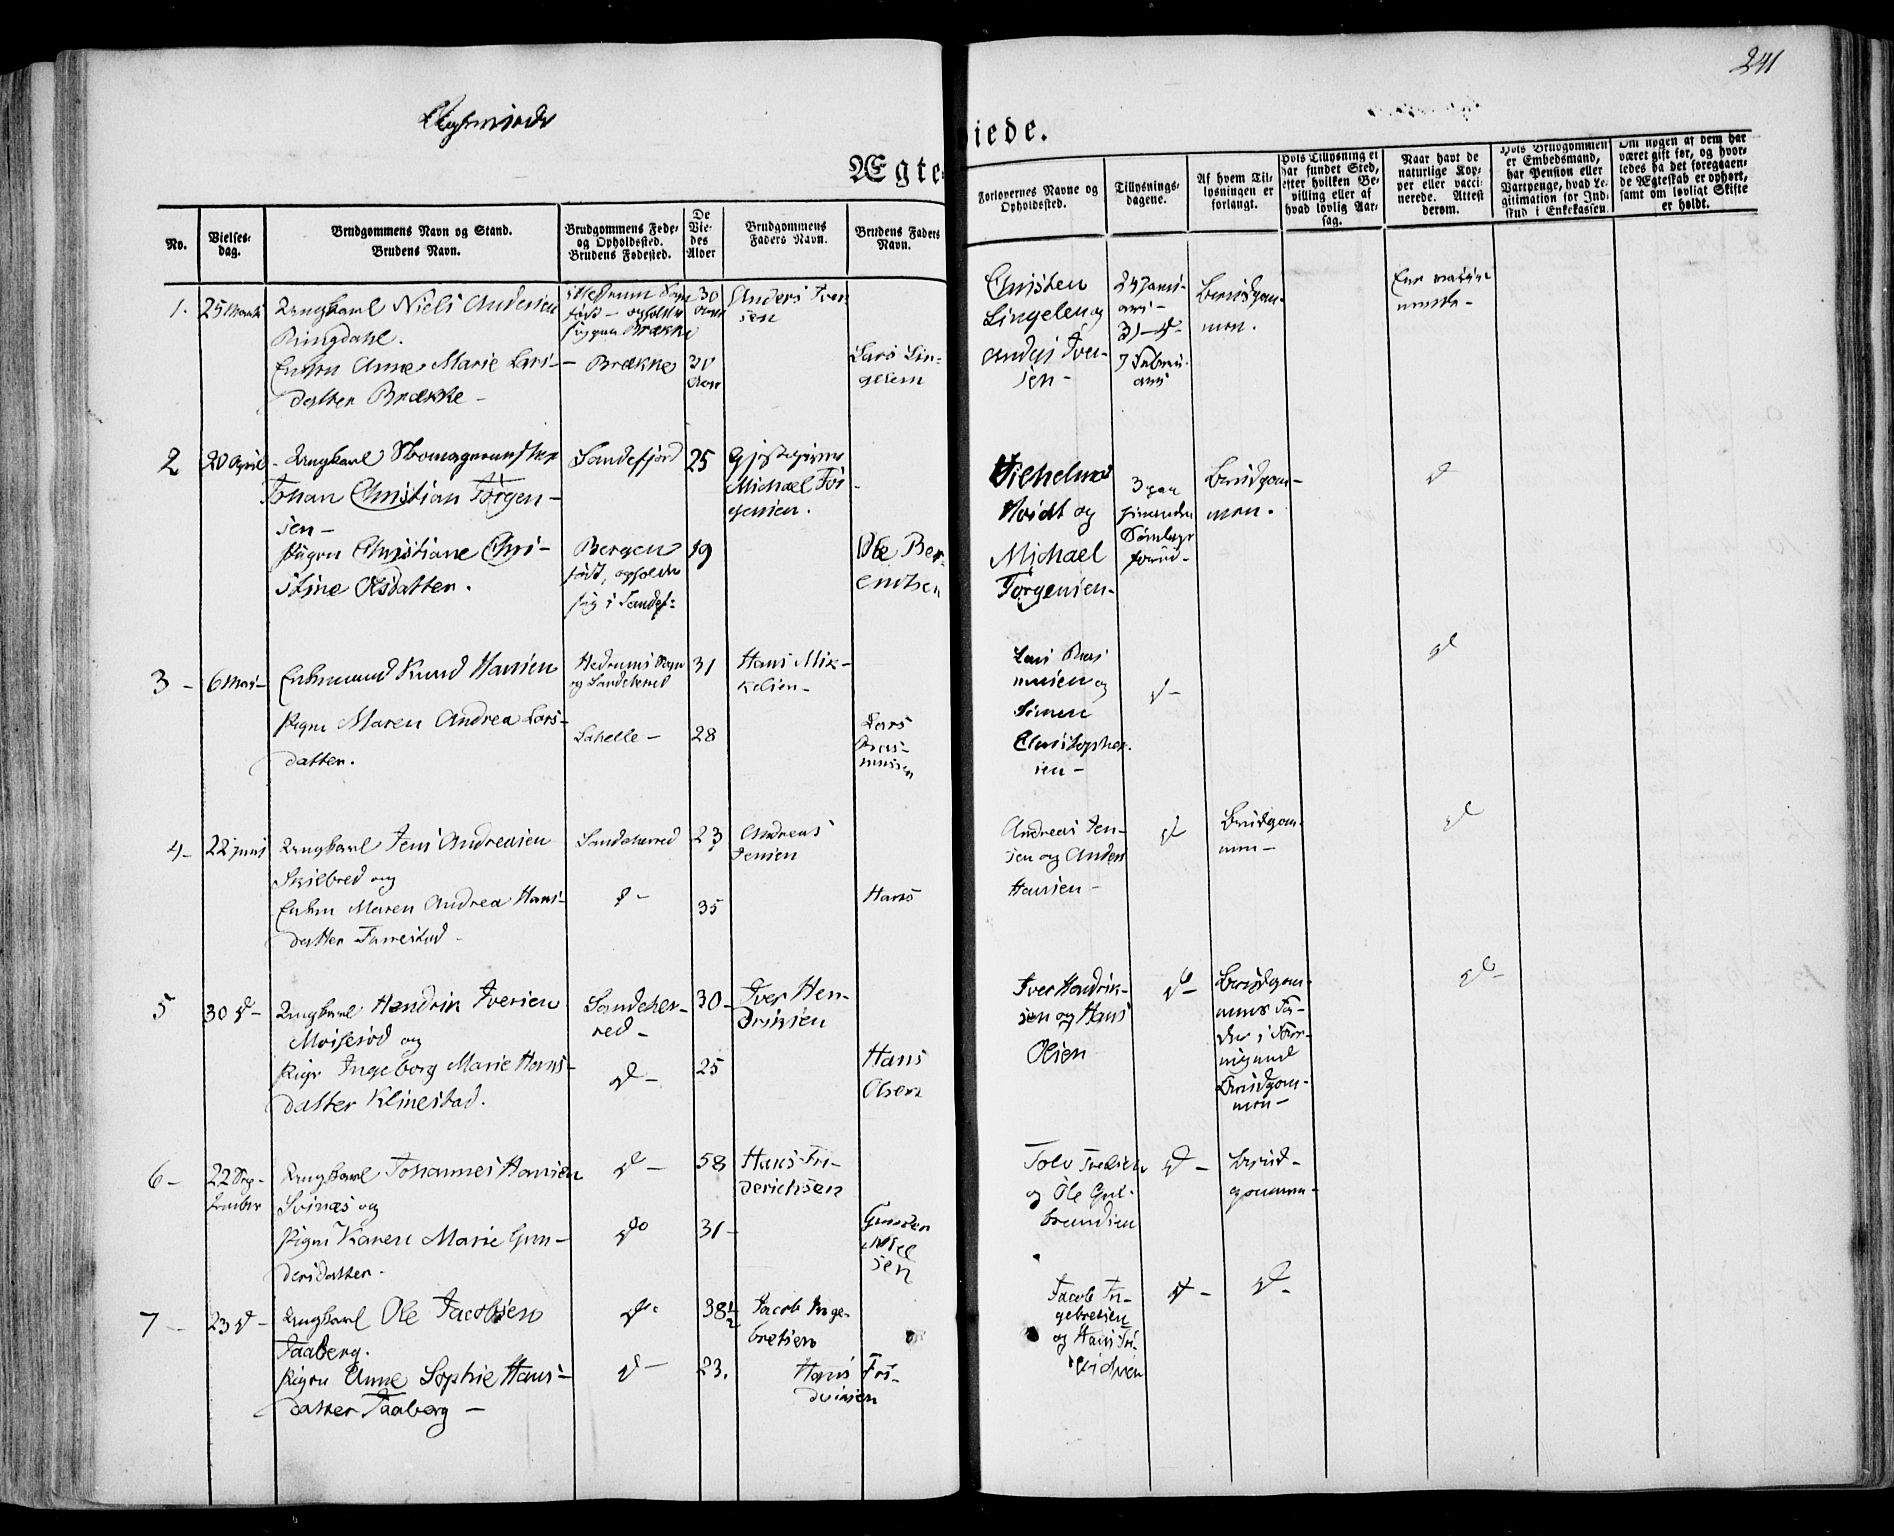 241
Ægteviede
Ægte-
viede.
No.
Vielses-
dag.
Brudgommens Navn og Stand.
Brudens Navn.
Brudgommens Føde-
og Opholdssted.
Brudens Fødested.
De
Vie-
des
Alder
Brudgommens
Faders Navn.
Brudens Faders
Navn.
Forlovernes Navne og
Opholdssted.
Tillysnings-
dagene.
Af hvem Til-
lysningen er
forlangt.
Hvis Tillysning ei
har fundet Sted,
efter hvilken Be-
villing eller af
hvad lovlig Aar-
sag.
Naar havt de
naturlige Kop-
per eller vacci-
nerede. Attest
derom.
Hvis Brudgommen
er Embedsmand,
har Pension eller
Vartpenge, hvad Le-
gitimation for Ind-
skud i Enkekassen.
Om nogen af dem har
været gift før, og hvor-
ledes da det foregaaen-
de Ægteskab er ophørt,
samt om lovligt Skifte
er holdt.
1.
25 Marts
Ungkarl Niels Andersen
Ringdahl.
Enken Anne Marie Lars-
datter Brække -
i Hedrum Sogn
født - opholder
sig paa Brække
- Brække
30
Aar
30
Aar
Anders Iver
sen
Lars Lin-
gelem
Christen
Lingelem og
Anders Iver-
sen -
24 Janu-
ari -
31 - d -
7 Febru-
ari
Brudgom-
men.
2
20 April
Ungkarl
Johan Christian Jørgen-
sen -
Pigen Christiane Chri-
stine Olsdatter.
Sandefjord
Bergen
født, opholder
sig i Sandef:
25
19
Gjestgiver
Michael Jør
gensen.
Ole Ber-
entsen
Vilhelm
Hvidt og
Michael
Jørgensen -
3 paa
hinanden
Brudgom-
men.
d
3 -
6 Mai -
Enkemand Knud Hansen
Pigen Maren Andrea Lars-
datter.
Hedrums Sogn
og Sandeherred
31
28
Hans Mik-
kelsen -
Lars
Ras-
mussen
Lars Ras
mussen og
Simen
Christopher-
sen -
d -
d
4 -
22 Juni
Ungkarl Jens Andreasen
Skilbred og
Enken Maren Andrea Hans-
datter
Sandeherred
d -
23
35
Andreas
Jensen
Hans
Andreas Jen-
sen og Anders
Hansen -
d
Brudgom-
men -
d
5
30 d -
Ungkarl Hendrik Iversen
og
Pigen Ingeborg Marie Hans-
datter Klinestad.
Sandeher-
red -
d -
30 -
25
Iver Hen-
driksen
Hans
Olsen
Iver Hendrik-
sen og Hans
Olsen
d -
Brudgom-
mens Fa-
der i
Brudgom-
men -
d
6 -
22 Sep-
tember
Ungkarl Johannes Hansen
Svinæs og
Pigen Karen Marie Gun-
dersdatter -
d -
do
58
31 -
Hans Fri-
derichsen
Gunder
Niel
sen
og Ole Gul-
brandsen
d -
Brud-
gommen -
7 -
23 d -
Ungkarl Ole Jacobsen
Taaberg.
Pigen Anne Sophie Hans-
datter Taaberg -
d -
d -
38 1/2
23.
Jacob Inge-
bretsen
Hans Fri-
driksen
Jacob In-
gebretsen
og Hans Fri-
d -
d -